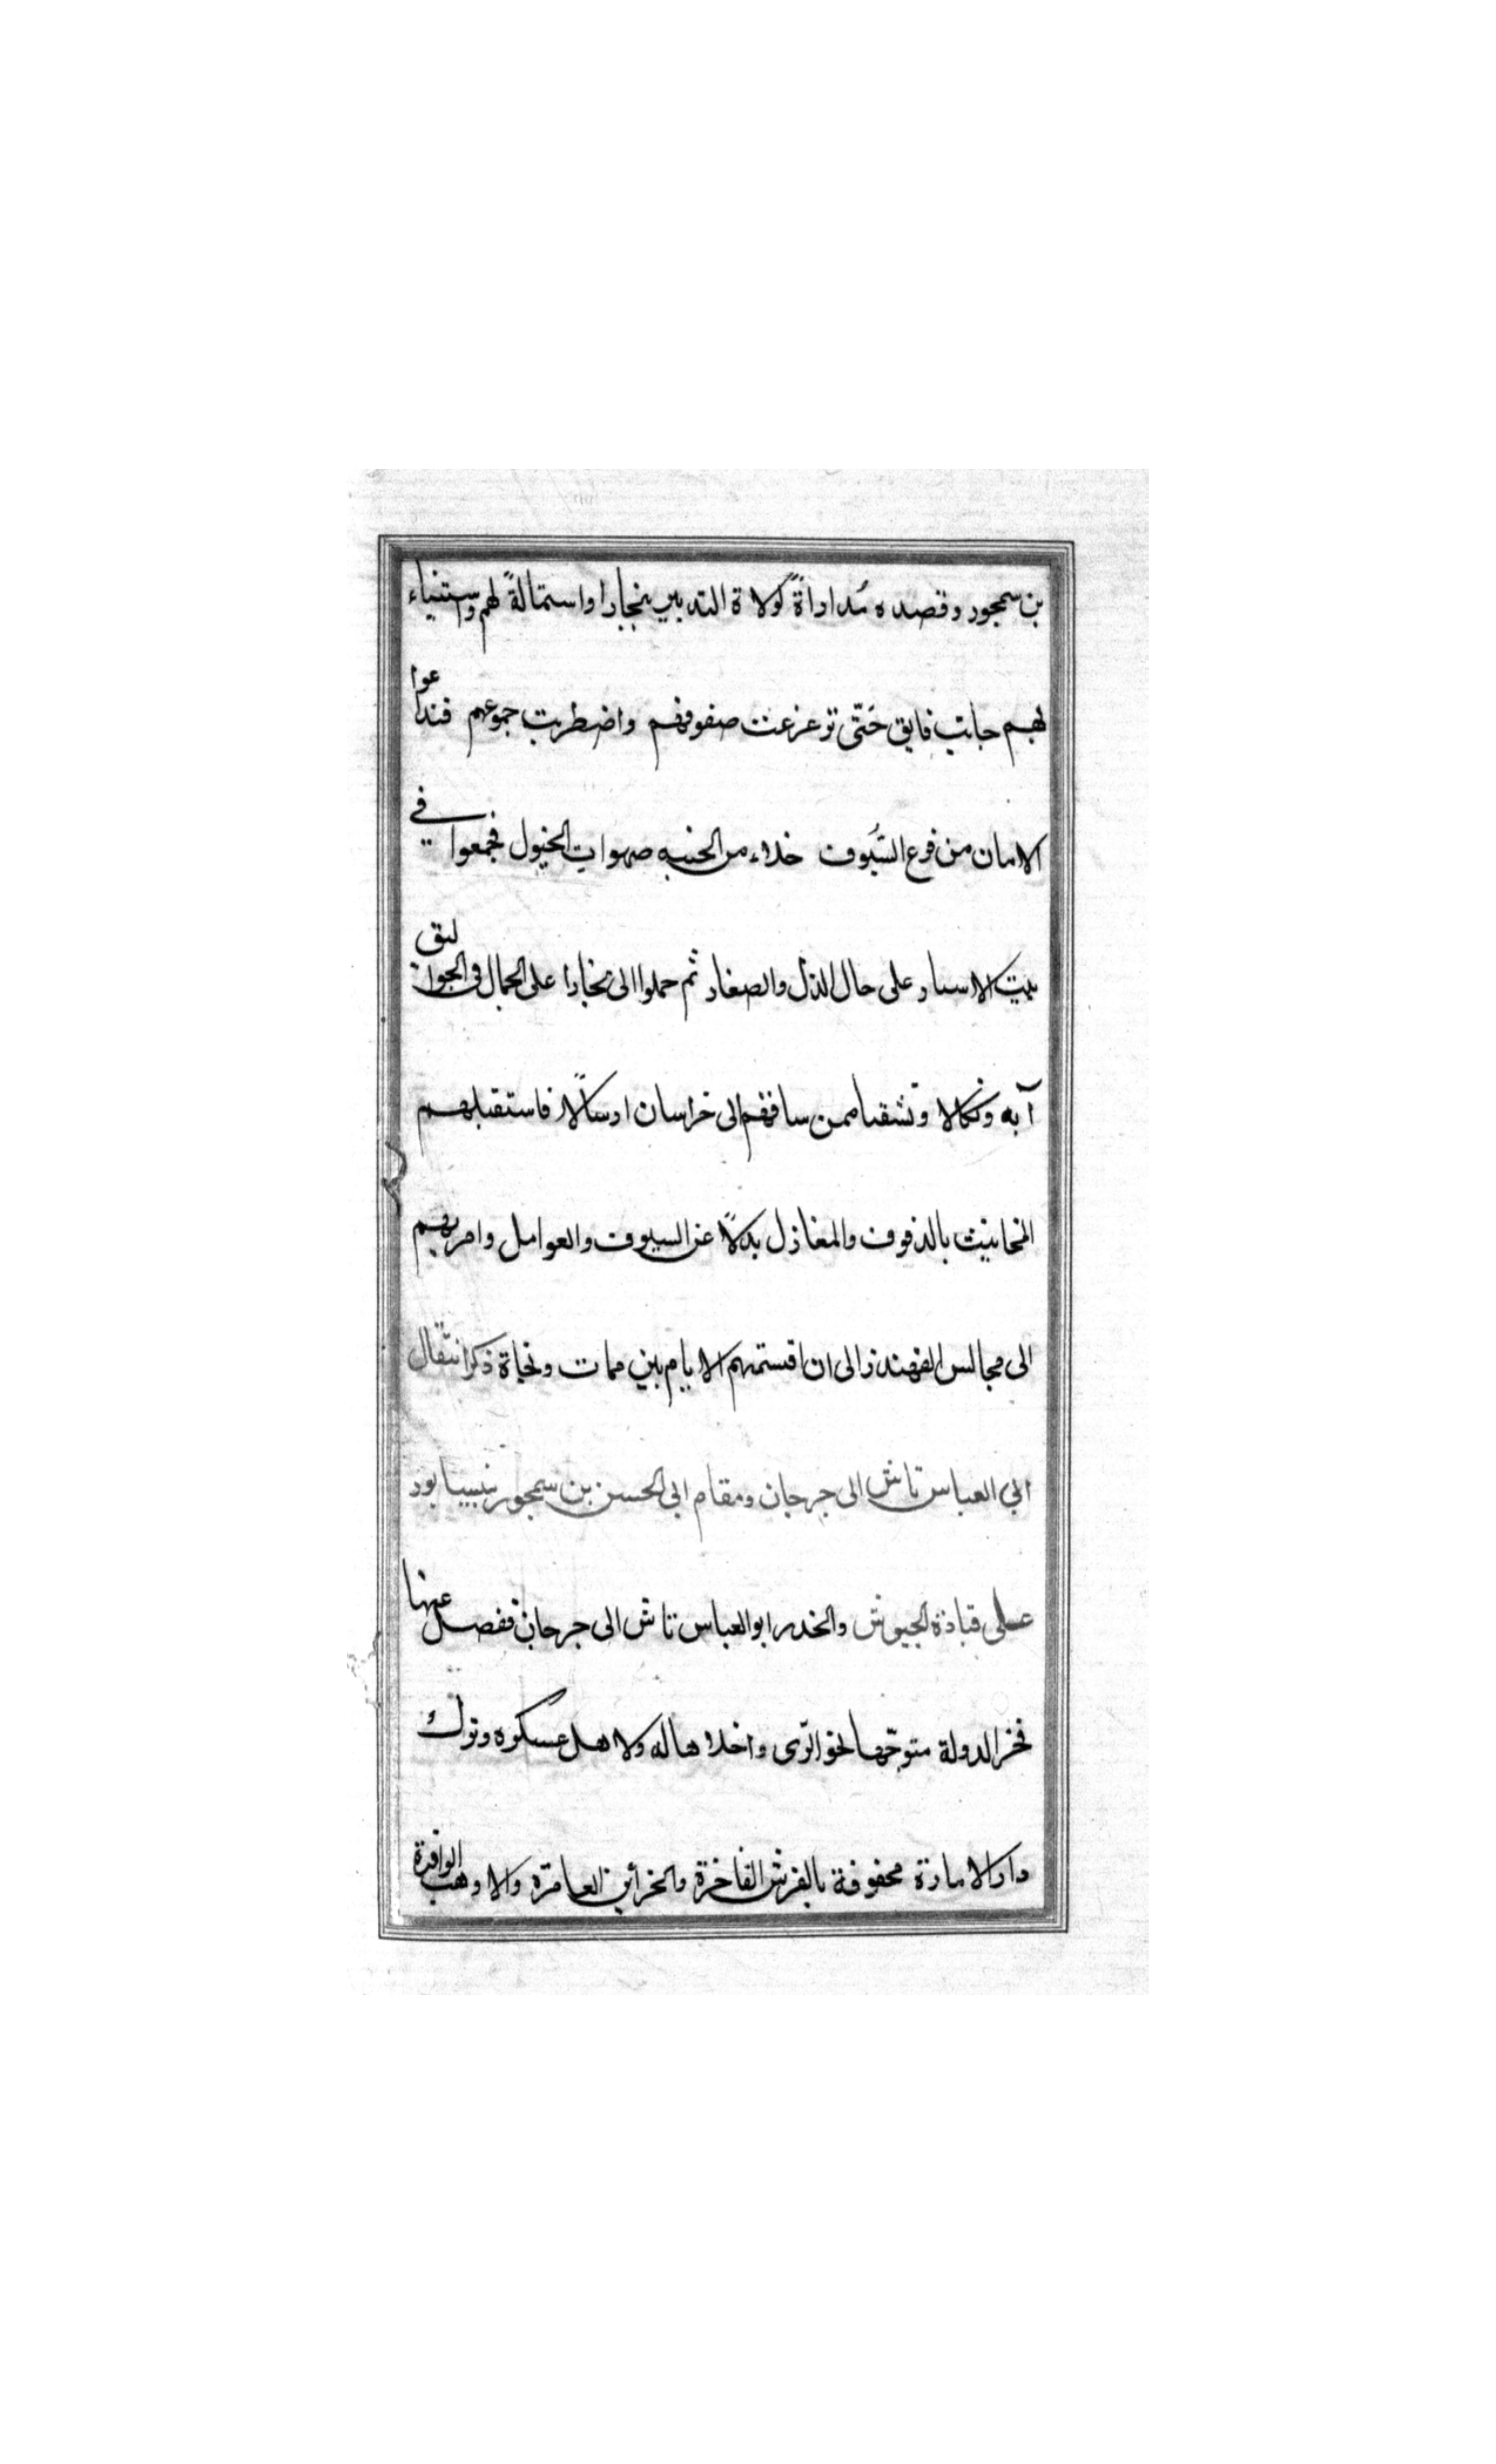 بن سمجور وقصده مُداراةً لولاة التدبير بنجارا واستمالةً لهم واستنياء
لهم جانب فايق حَتّى توعزعت صفوفهم واضطربت جموعهم فنداعوا
الامان من فوع السُيوف خلاء من الجنبه صهوات الخيول فجمعوا في
بيت الاسار على حال الذل والصغار ثم حملوا الى بخارا على الجمال في الجواليق
آبه ونكالا وتشفيا ممن ساقهم الى خراسان ارسالًا فاستقبلهم
المخانيث بالدفوف والمغازل بدلًا عن السيوف والعوامل وامر بهم
الى مجالس القهندز الى ان اقستمهم الايام بين ممات ونجاة ذكر انتقال
ابي العباس تاش الى جرجان ومقام ابي الحسن بن سمجور بنيسابور
على قيادة الجيوش وانحدر ابو العباس تاش الى جرجان ففصل عنها
فخر الدولة متوجّها نحو الرّى واخلاها له ولاهل عسكره وترك
دار الامارة محفوفة بالفرش الفاخرة والخزأين العامرة والاوهب الوافرة